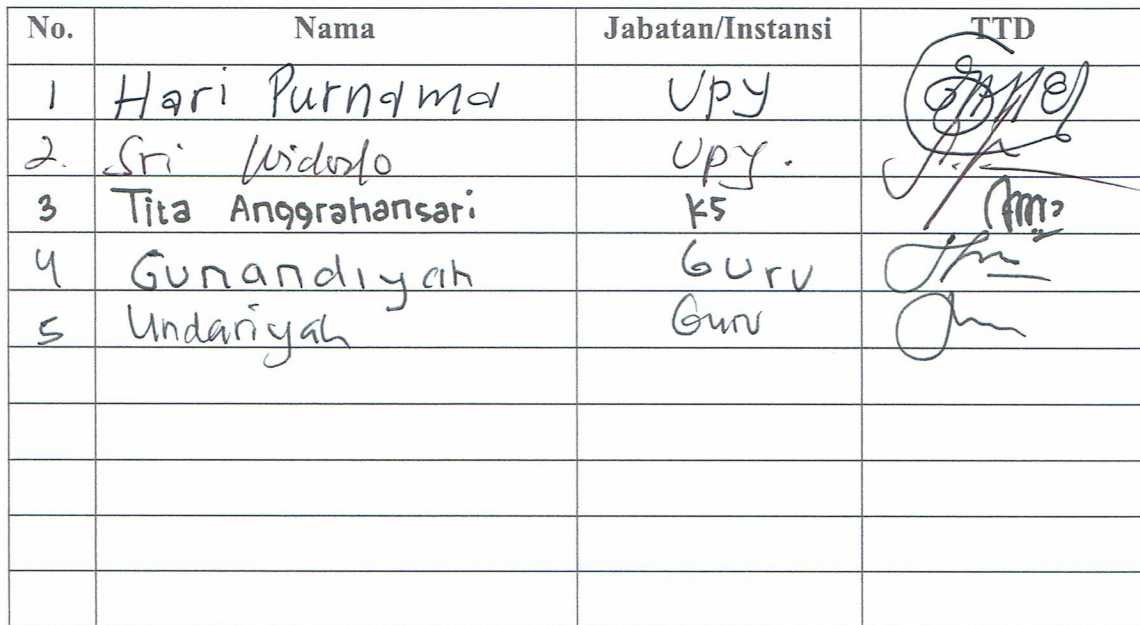 No. Nama Jabatan/Instansi TTD
1 Hari Purnama UPY
2. Sri Widodo UPY.
3 Tita Anggrahansari KS
4 Gunandiyah Guru
5 Undariyah Guru